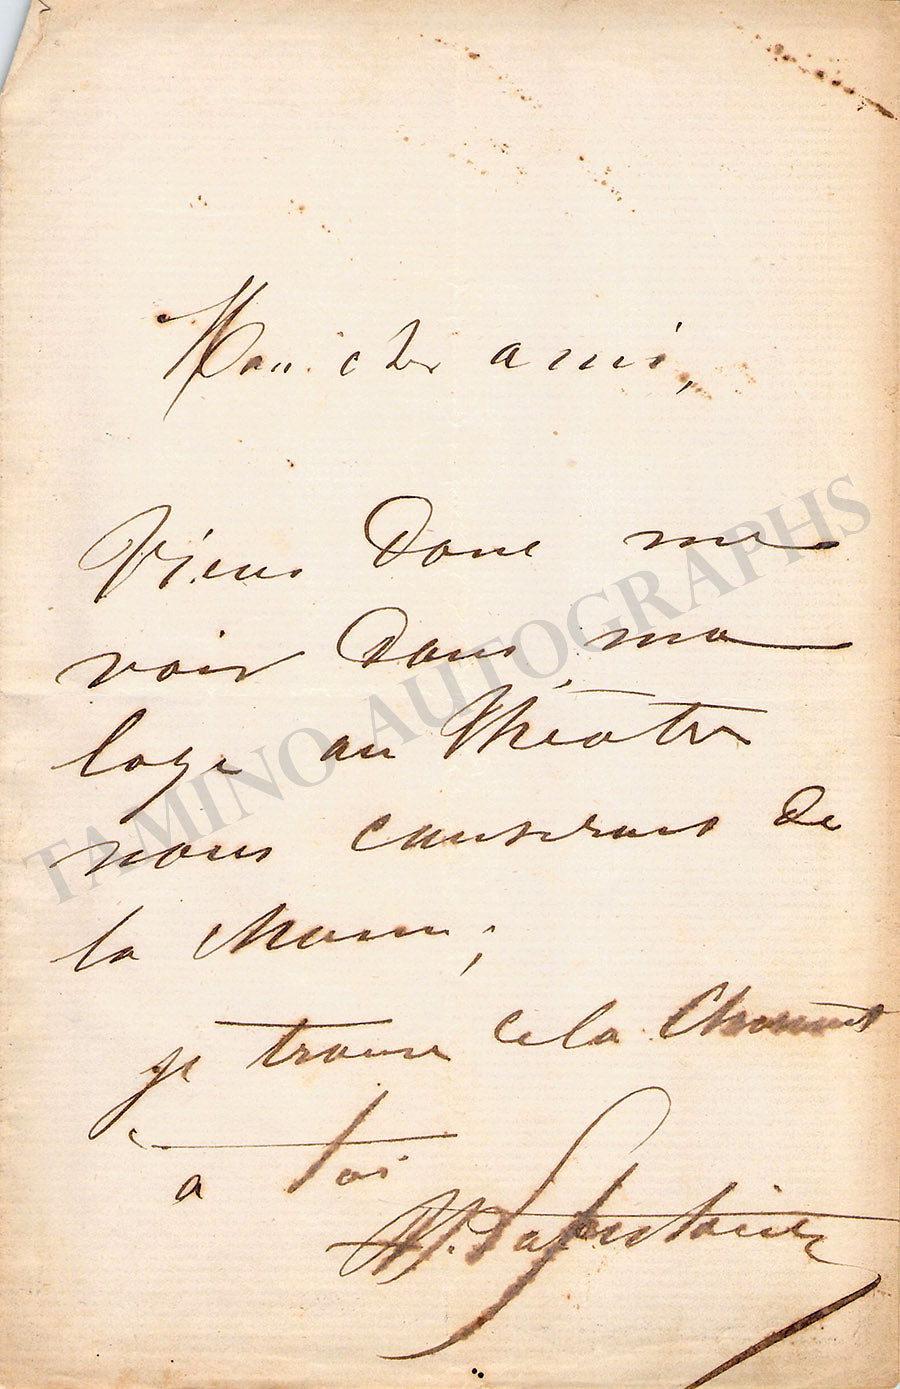 Mon cher ami,
Viens donc me
voir dans ma
loge au Théâtre
nous causerons de
la chose ;
je trouve cela charmant
à toi
H. Lafontaine
TAMINO AUTOGRAPHS